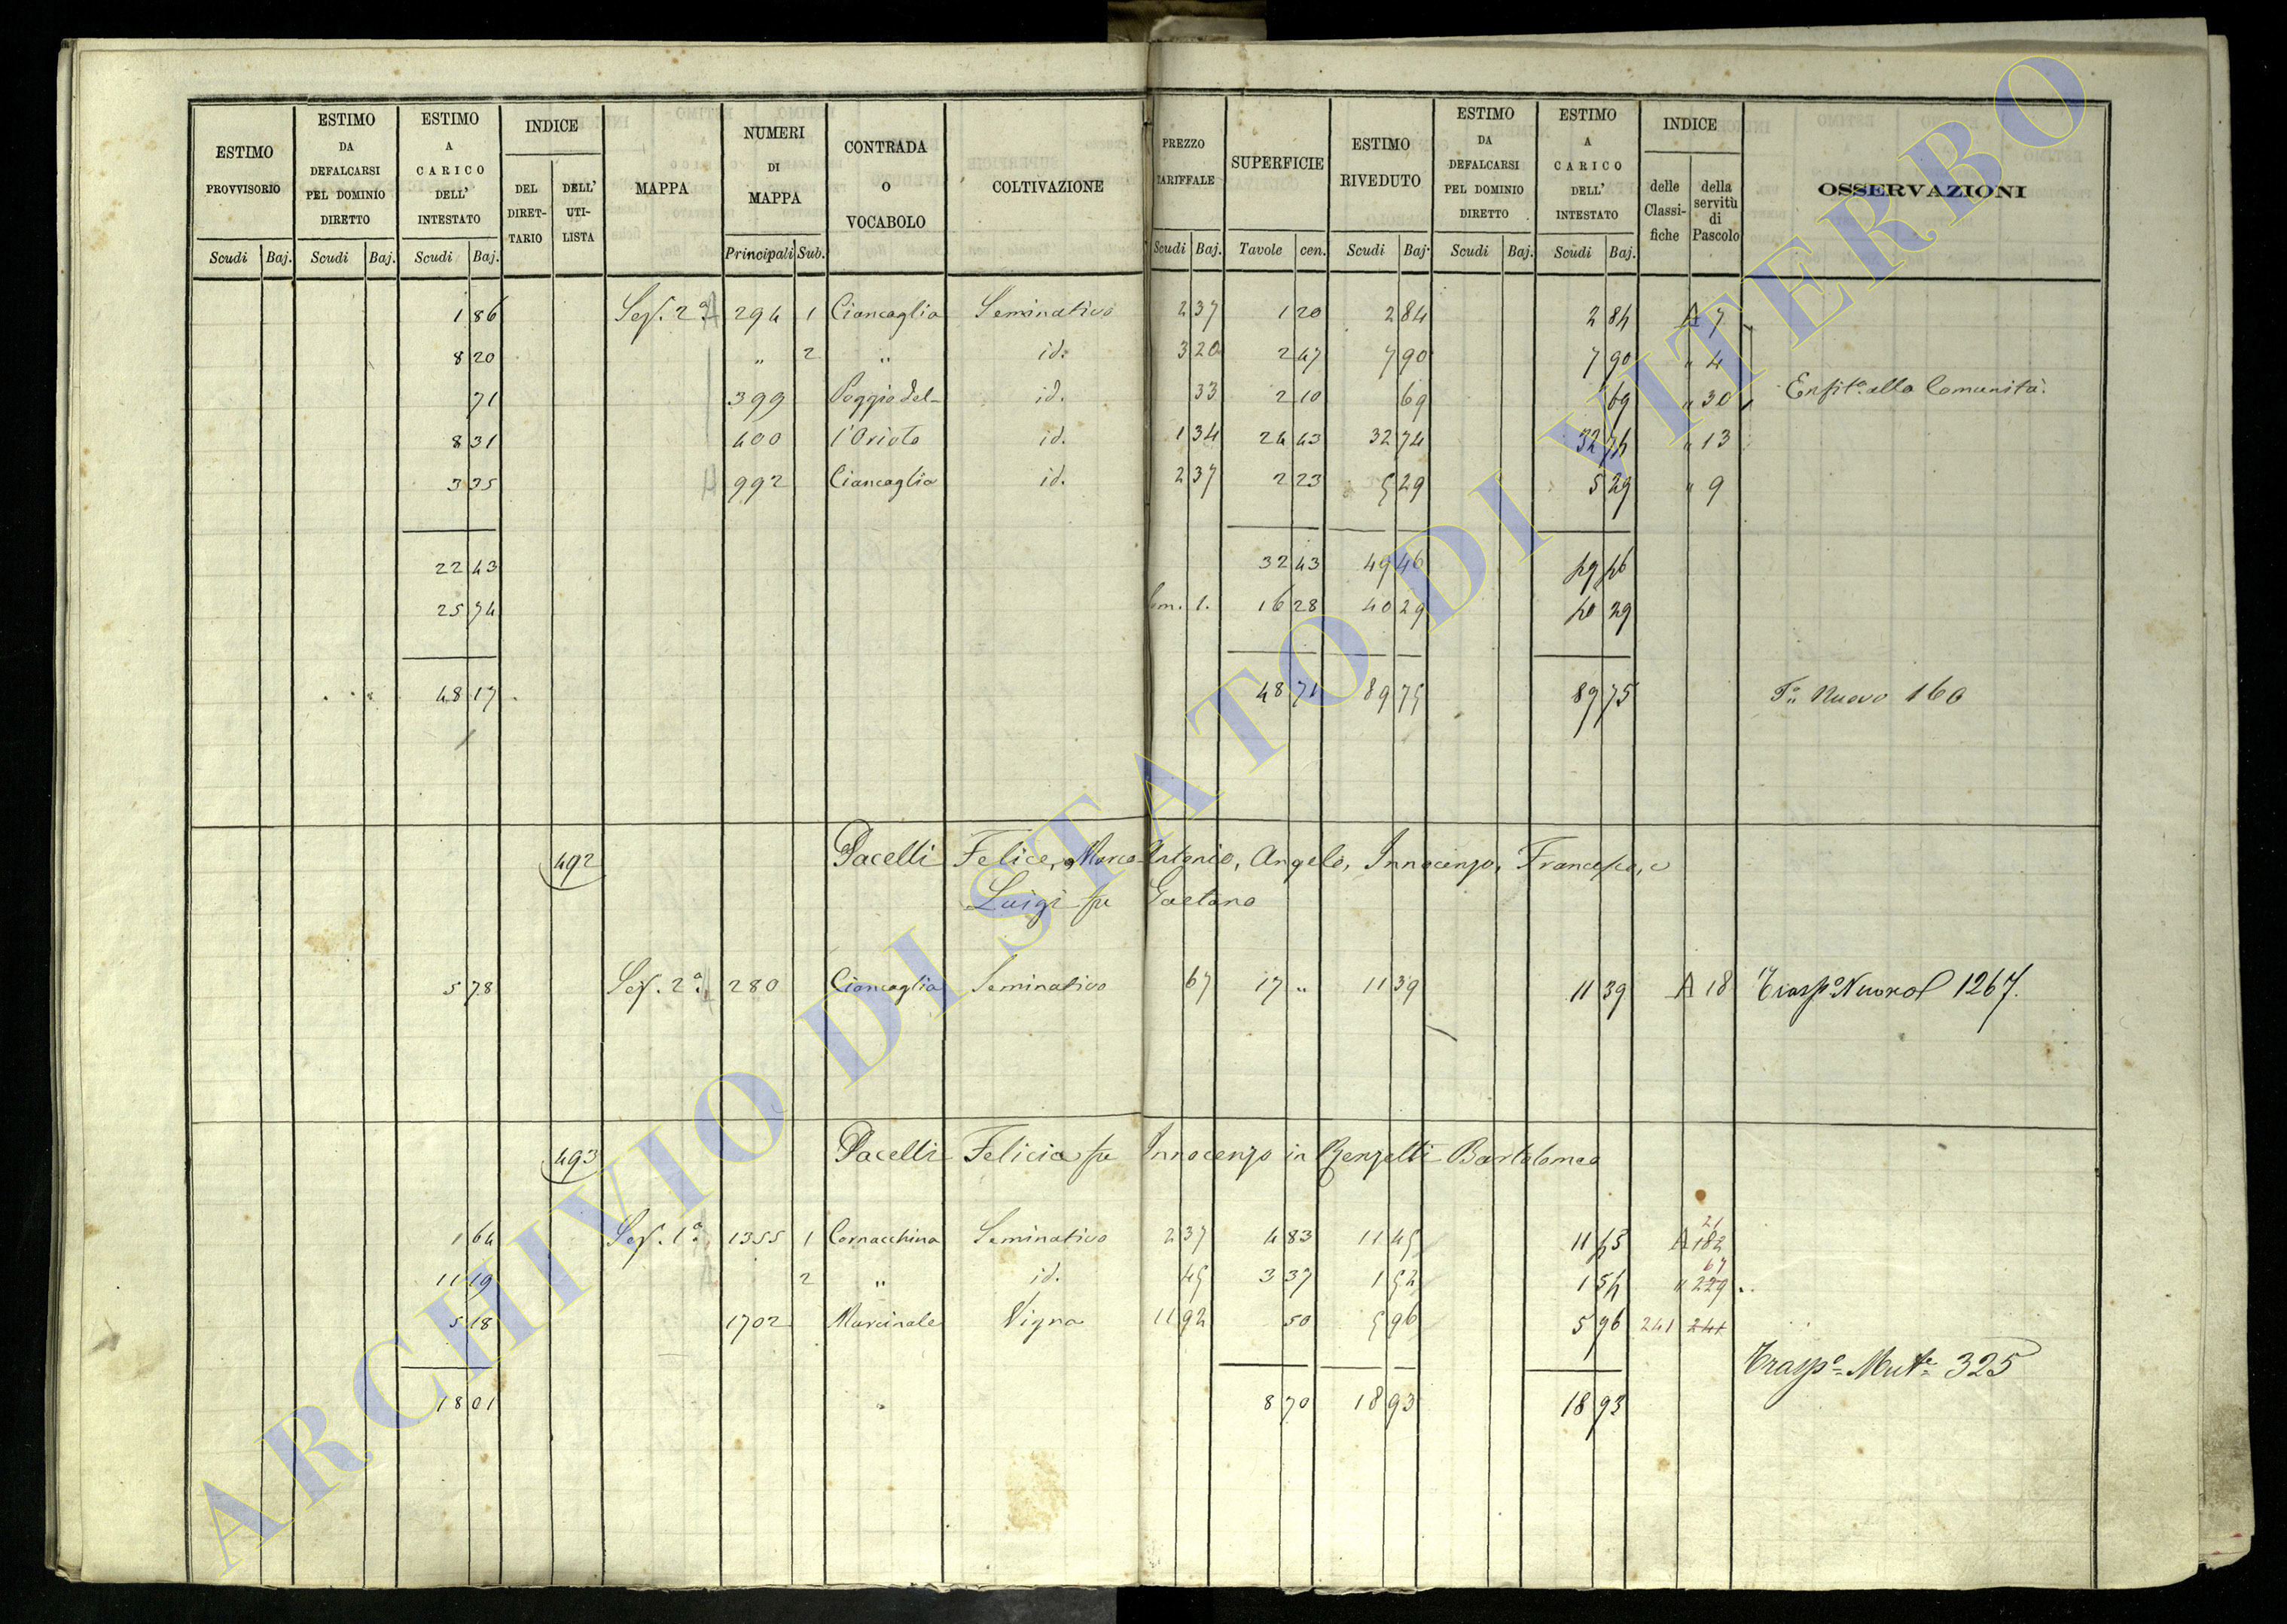 ESTIMO PROVVISORIO | ESTIMO DA DEFALCARSI PEL DOMINIO DIRETTO | ESTIMO A CARICO DELL' INTESTATO | INDICE DEL DIRETTARIO | DELL' UTILISTA | MAPPA | NUMERI DI MAPPA | CONTRADA O VOCABOLO | COLTIVAZIONE | PREZZO TARIFFALE | SUPERFICIE | ESTIMO RIVEDUTO | ESTIMO DA DEFALCARSI PEL DOMINIO DIRETTO | ESTIMO A CARICO DELL' INTESTATO | INDICE delle Classifiche | della servitù di Pascolo | OSSERVAZIONI
Scudi Baj. | Scudi Baj. | Scudi Baj. | Principali Sub. | Scudi Baj. | Tavole cen. | Scudi Baj. | Scudi Baj. | Scudi Baj.
1 86 Sez. 2ª 294 1 Ciancaglia Seminativo 2 37 1 20 2 84 2 84 A 7
8 20 " 2 " id. 3 20 2 47 7 90 7 90 " 4
71 399 Poggio del- id. 33 2 10 69 69 " 30 Enfit. alla Comunità
8 31 400 l'Oriolo id. 1 34 24 43 32 74 32 74 " 13
3 35 992 Ciancaglia id. 2 37 2 23 5 29 5 29 " 9
22 43 32 43 49 46 49 46
25 74 16 28 40 29 40 29
48 17 48 71 89 75 89 75 Tº Nuovo 160
492 Pacelli Felice, Marco Antonio, Angelo, Innocenzo, Francesco, e
Luigi fu Gaetano
5 78 Sez. 2ª 280 Ciancaglia Seminativo 67 17 " 11 39 11 39 A 18 Traspº Nuovo al 1267.
493 Pacelli Felicia fu Innocenzo in Renzetti Bartolomeo
21
1 64 Sez. 1ª 1355 1 Cornacchina Seminativo 2 37 4 83 11 45 11 45 A 182
67
11 19 2 " id. 45 3 37 1 52 1 52 " 229
5 18 1702 Marcinale Vigna 11 92 50 5 96 5 96 241 241
Traspº Mutº 325
18 01 8 70 18 93 18 93
ARCHIVIO DI STATO DI VITERBO